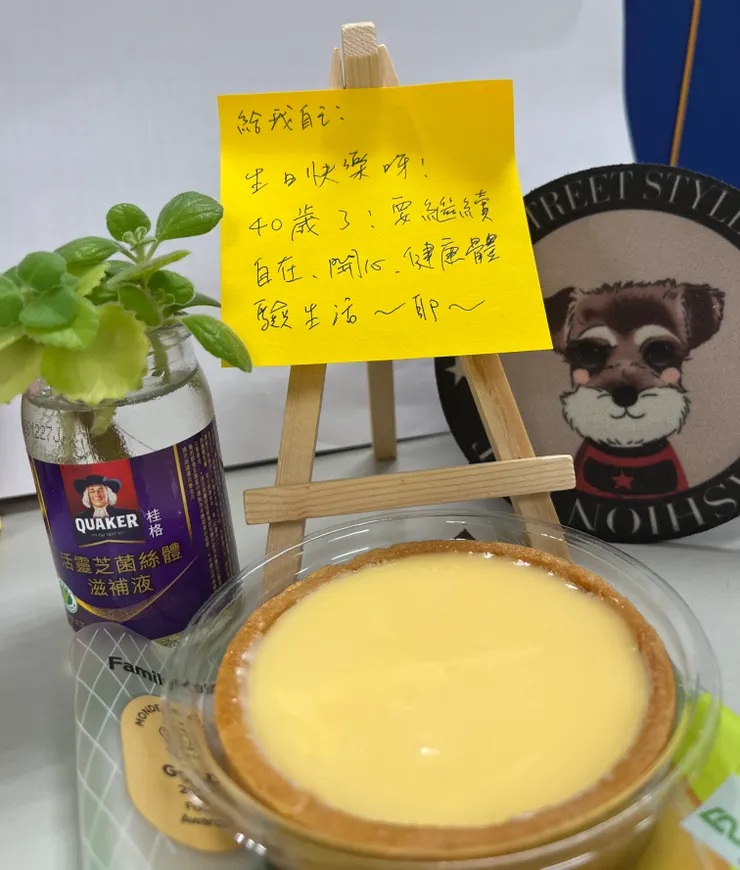 給我自己：
生日快樂呀！
40歲了！要繼續
自在、開心、健康體
驗生活～耶～
STREET STYLE
FASHION
QUAKER
桂格
活靈芝菌絲體
滋補液
Family
MONDE